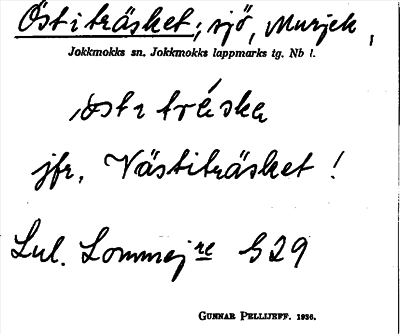 Östiträsket; sjö, Murjek,
Jokkmokks sn. Jokkmokks lappmarks tg. Nb l.
jfr. Västiträsket!
Lul. § 29
GUNNAR PELLIJEFF. 1936.